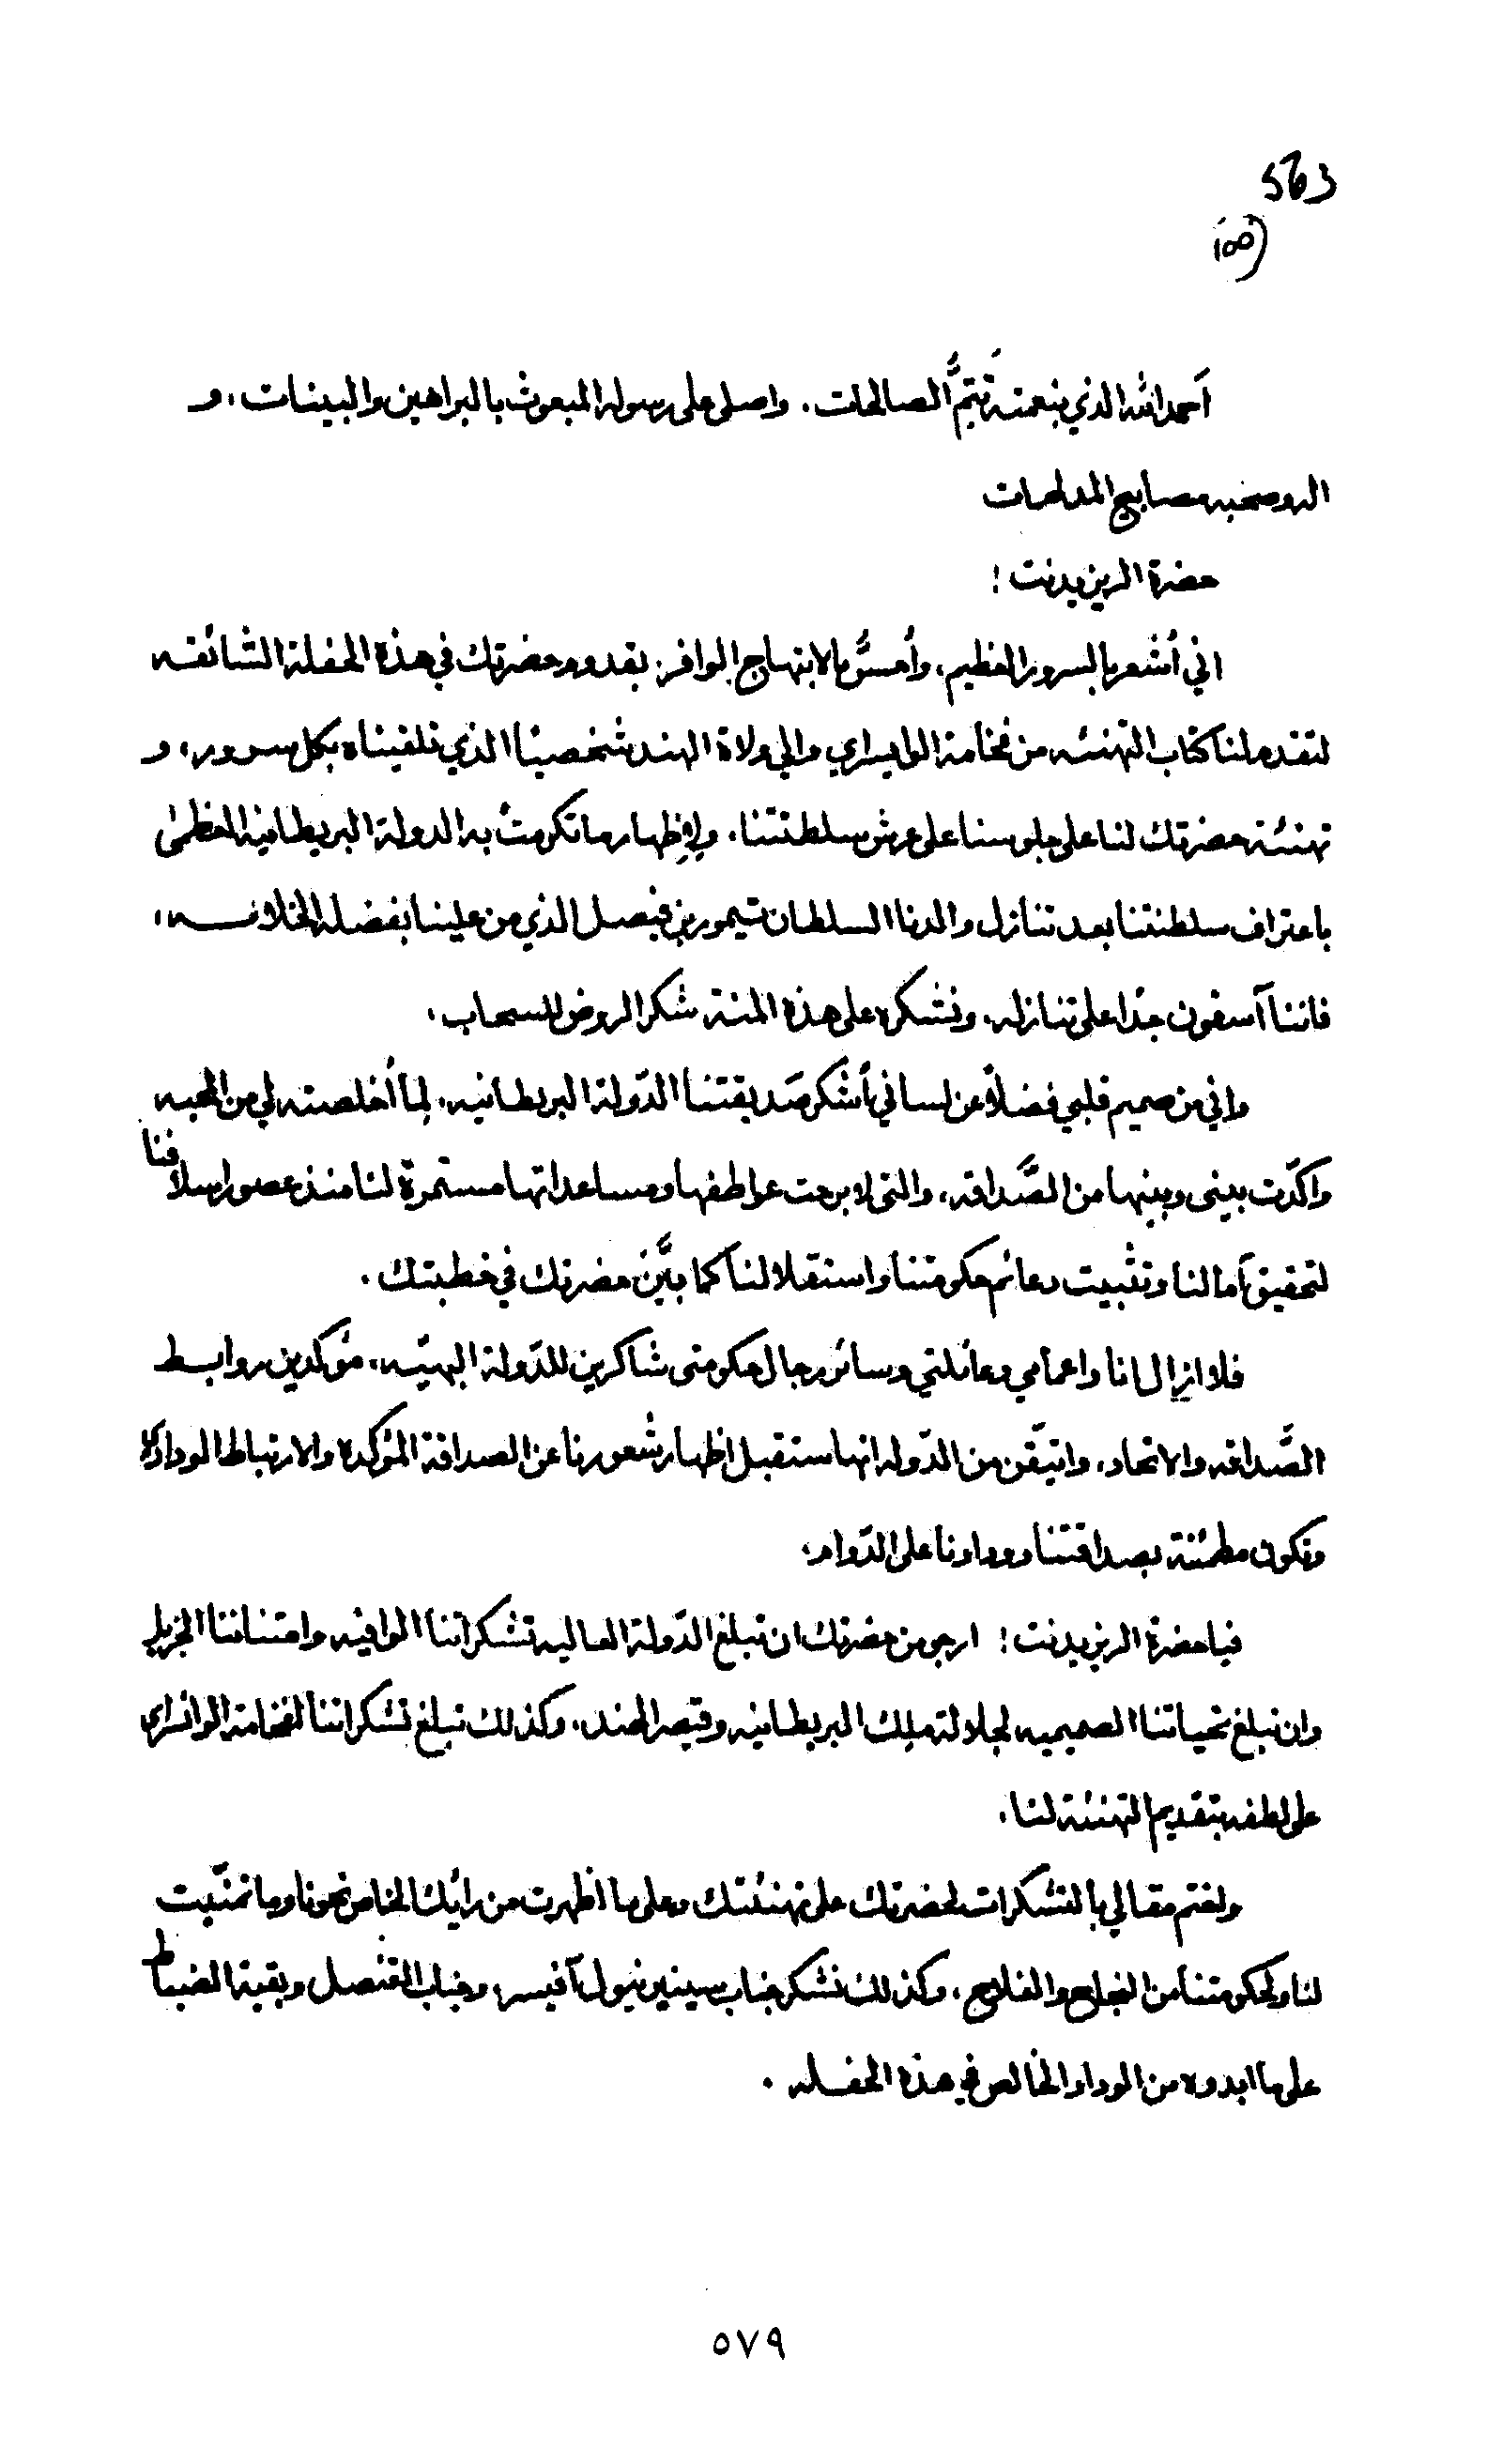 563
(١٥٥
أحمد الله الذي بنعمته تَتِمُّ الصالحات، واصلي على رسوله المبعوث بالبراهين والبينات، و
اله وصحبه مصابيح المدلهمات
حضرة الريزيدنت !
اني أشعر بالسرور العظيم، وأحسُّ بالابتهاج الوافر، بقدوم حضرتك في هذه الحفلة الشائقه
لتقدم لنا كتاب التهنئه من فخامة الوايسراي والي ولاة الهند شخصيا الذي تلقيناه بكل سرور، و
تهنئة حضرتك لنا على جلوسنا على عرش سلطنتنا، ولإظهار ما تكرمتْ به الدولة البريطانية العظمىٰ
باعتراف سلطنتنا بعد تنازل والدنا السلطان تيمور بن فيصل الذي من علينا بفضله الخلافــه،
فاننا آسفون جدًا على تنازله، ونشكره على هذه المنة شكر الروض للسحاب،
واني من صميم قلبي فضلاً عن لساني أشكر صَديقتنا الدّولة البريطانيه، لِما أخلصته لي من المحبه
واكدّت بيني وبينها من الصَّداقه، والتي لا برحت عواطفها ومساعداتها مستمرة لنا منذ عصور اسلافنا
لتحقيق آمالنا وتثبيت دعائم حكومتنا واستقلالنا كما بيَّن حضرتك في خطبتك .
فلا ازال انا واعمامي وعائلتي وسائر رجال حكومتي شاكرين للدّولة البهيّه، مؤكدين روابط
الصَّداقه والاتحاد، واتيقّن من الدّوله انها ستقبل اظهار شعورنا عن الصداقة المؤكدة والارتباط الودادي
وتكون مطمئنة بصداقتنا وودادنا على الدّوام،
فيا حضرة الريزيدنت ! ارجو من حضرتك ان تبلغ الدّولة العاليه تشكراتنا الوافيه وامتناننا الجزيل
وان تبلغ تحياتنا الصميميه لجلالة ملِك البريطانيه وقيصر الهند، وكذلك تبلغ تشكراتنا لفخامة الوائسراي
على لطفه بتقديم التهنئة لنا،
ولختم مقالي بالتشكرات لحضرتك على تهنئتك وعلى ما اظهرت من رائك الخاص نحونا وما تمنّيت
لنا ولحكومتنا من النجاح والفلاح، وكذلك نشكر جناب سينير نيول آفيسر، وجناب القنصل وبقية الضباط
على ما ابدوه من الوداد الخالص في هذه الحفــله .
٥٧٩